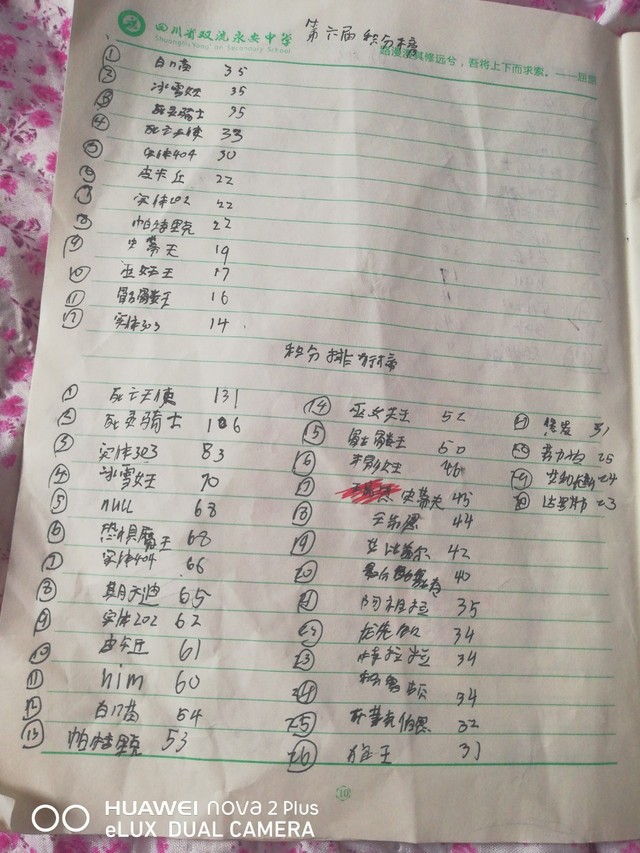 四川省双流永安中学
Shuangliu Yong'an Secondary School
第六届积分榜
路漫漫其修远兮，吾将上下而求索。——屈原
① 白门苗 35
② 冰雪女王 35
③ 死灵骑士 35
④ 死亡天使 33
⑤ 实体404 30
⑥ 皮卡丘 22
⑦ 实体202 22
⑧ 帕特里克 22
⑨ 史蒂夫 19
⑩ 巫女王 17
⑪ 骷髅王 16
⑫ 实体303 14
积分排行榜
① 死亡天使 131
② 死灵骑士 106
③ 实体303 83
④ 冰雪女王 70
⑤ null 68
⑥ 恐惧魔王 68
⑦ 实体404 66
⑧ 期天迪 65
⑨ 实体202 62
⑩ 61
⑪ him 60
⑫ 白门苗 54
⑬ 帕特里克 53
⑭ 巫女王 52
⑮ 骷髅王 50
⑯ 女王 46
⑰ 史蒂夫 45
⑱ 44
⑲ 艾比盖尔 42
⑳ 40
㉑ 阿祖拉 35
㉒ 34
㉓ 34
㉔ 34
㉕ 伯恩 32
㉖ 王 31
㉗ 31
㉘ 25
㉙ 24
㉚ 23
10
HUAWEI nova 2 Plus
eLUX DUAL CAMERA